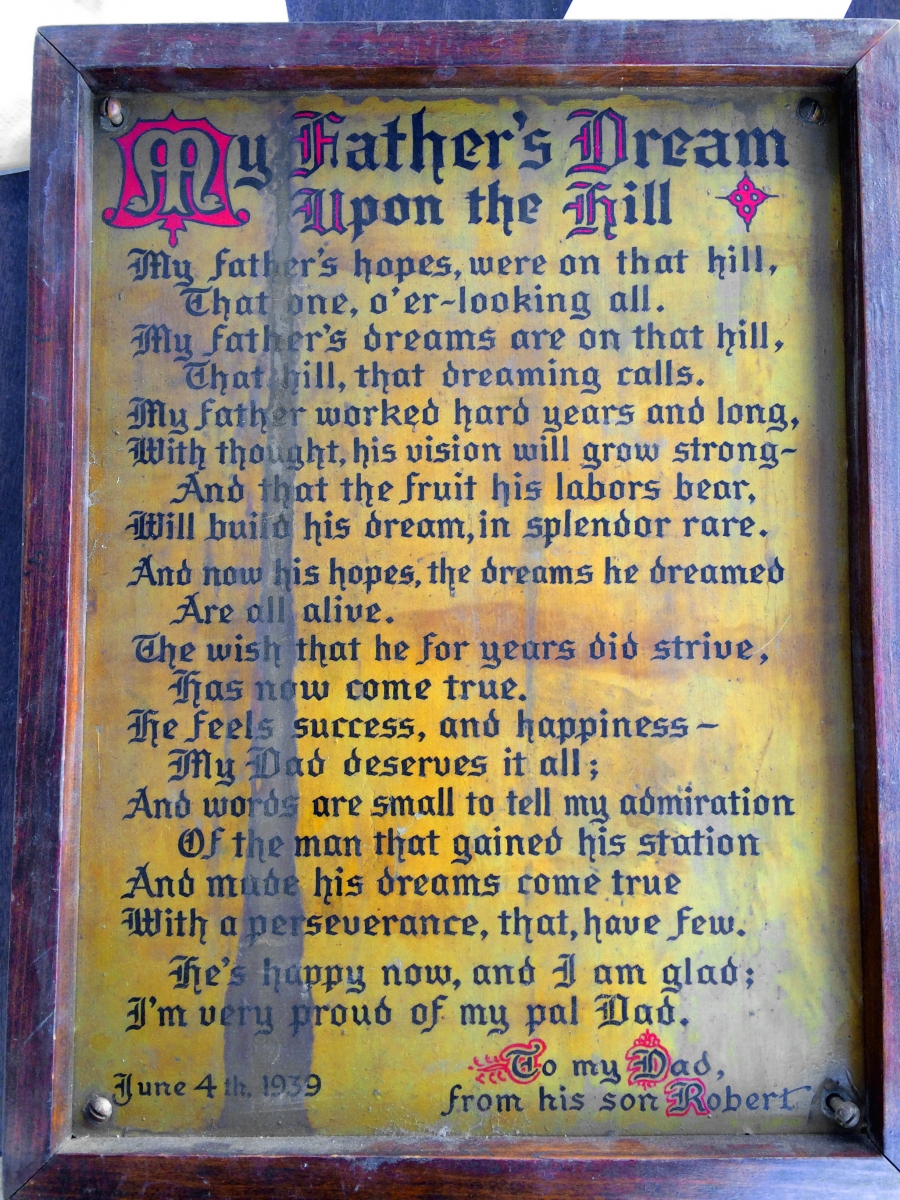 My Father's Dream
Upon the Hill
My father's hopes, were on that hill,
That one, o'er-looking all.
My father's dreams are on that hill,
That hill, that dreaming calls.
My father worked hard years and long,
With thought, his vision will grow strong-
And that the fruit his labors bear,
Will build his dream, in splendor rare.
And now his hopes, the dreams he dreamed
Are all alive.
The wish that he for years did strive,
Has now come true.
He feels success, and happiness-
My Dad deserves it all;
And words are small to tell my admiration
Of the man that gained his station
And made his dreams come true
With a perseverance, that, have few.
He's happy now, and I am glad;
I'm very proud of my pal Dad.
To my Dad,
June 4th, 1939
from his son Robert